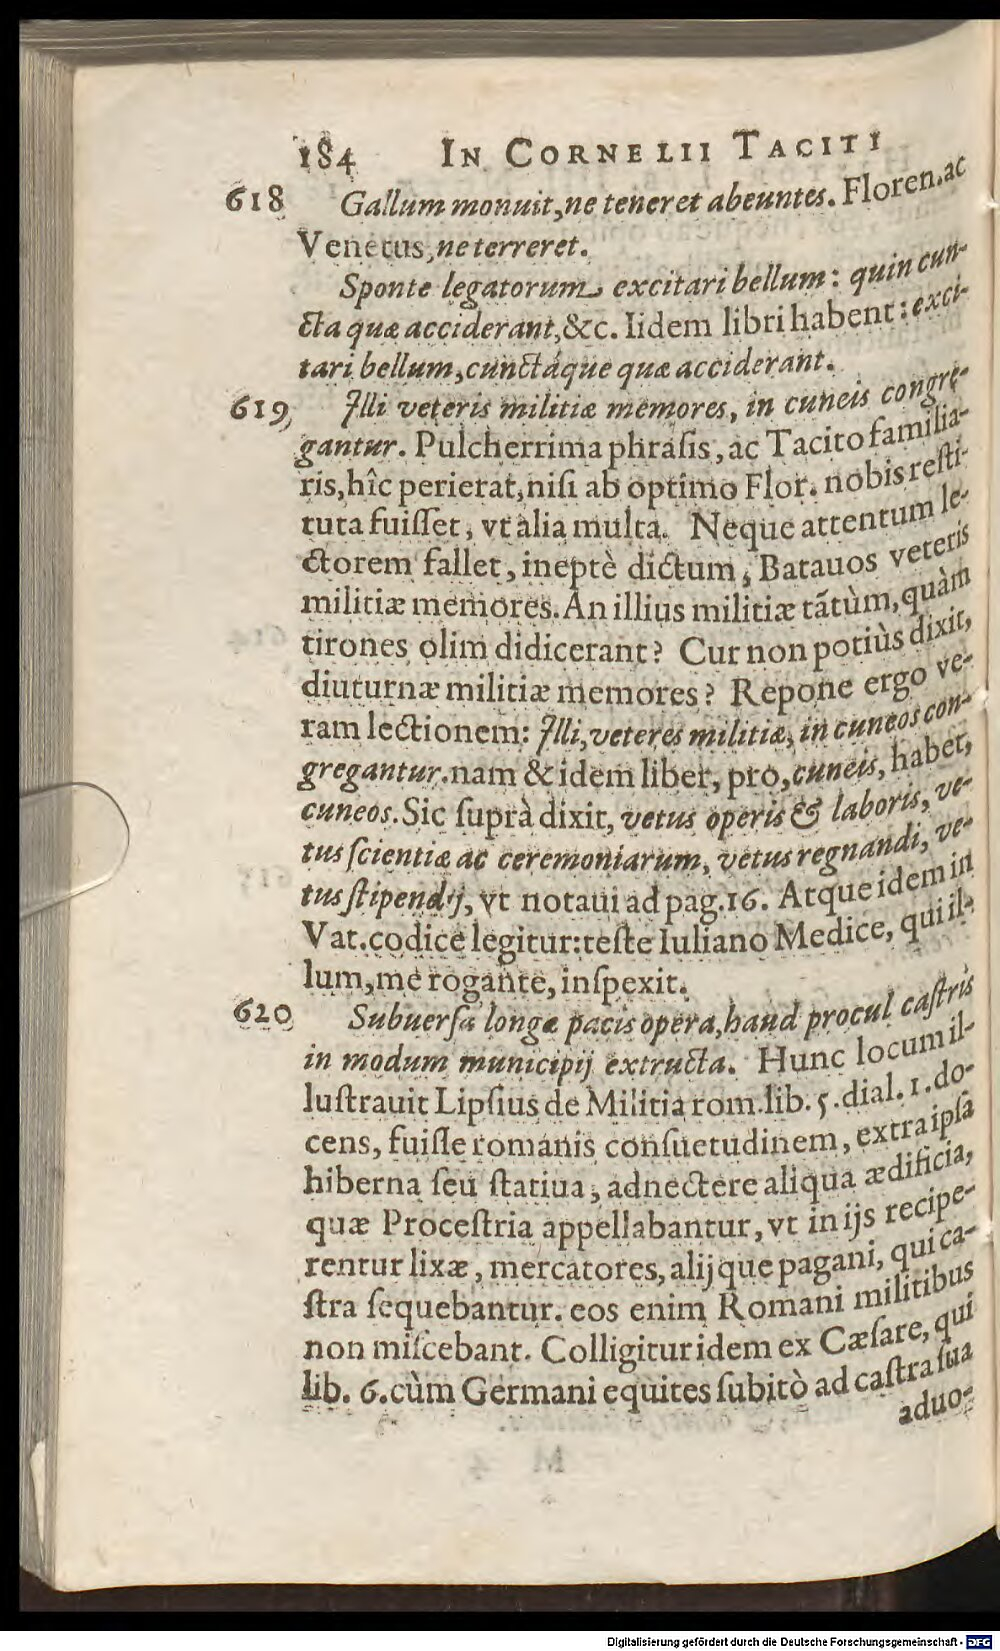 184 IN CORNELII TACITI
618 Gallum monuit, ne teneret abeuntes. Floren. ac
Venetus, ne terreret.
Sponte legatorum excitari bellum: quin cun-
cta quæ acciderant, &c. Iidem libri habent: exci-
tari bellum, cunctáque quæ acciderant.
619 Illi veteris militiæ memores, in cuneis congre-
gantur. Pulcherrima phrasis, ac Tacito familia-
ris, hîc perierat, nisi ab optimo Flor. nobis resti-
tuta fuisset, vt alia multa. Neque attentum le-
ctorem fallet, ineptè dictum, Batauos veteris
militiæ memores. An illius militiæ tãtùm, quàm
tirones olim didicerant? Cur non potiùs dixit,
diuturnæ militiæ memores? Repone ergo ve-
ram lectionem: Illi, veteres militiæ, in cuneos con-
gregantur. nam & idem liber, pro, cuneis, habet,
cuneos. Sic suprà dixit, vetus operis & laboris, ve-
tus scientiæ ac ceremoniarum, vetus regnandi, ve-
tus stipendij, vt notaui ad pag. 16. Atque idem in
Vat. codice legitur: teste Iuliano Medice, qui il-
lum, me rogante, inspexit.
620 Subuersa longæ pacis opera, haud procul castris
in modum municipij extructa. Hunc locum il-
lustrauit Lipsius de Militia rom. lib. 5. dial. 1. do-
cens, fuisse romanis consuetudinem, extra ipsa
hiberna seu statiua, adnectere aliqua ædificia,
quæ Procestria appellabantur, vt in ijs recipe-
rentur lixæ, mercatores, alijque pagani, qui ca-
stra sequebantur. eos enim Romani militibus
non miscebant. Colligitur idem ex Cæsare, qui
lib. 6. cùm Germani equites subitò ad castra sua
aduo-
Digitalisierung gefördert durch die Deutsche Forschungsgemeinschaft - DFG